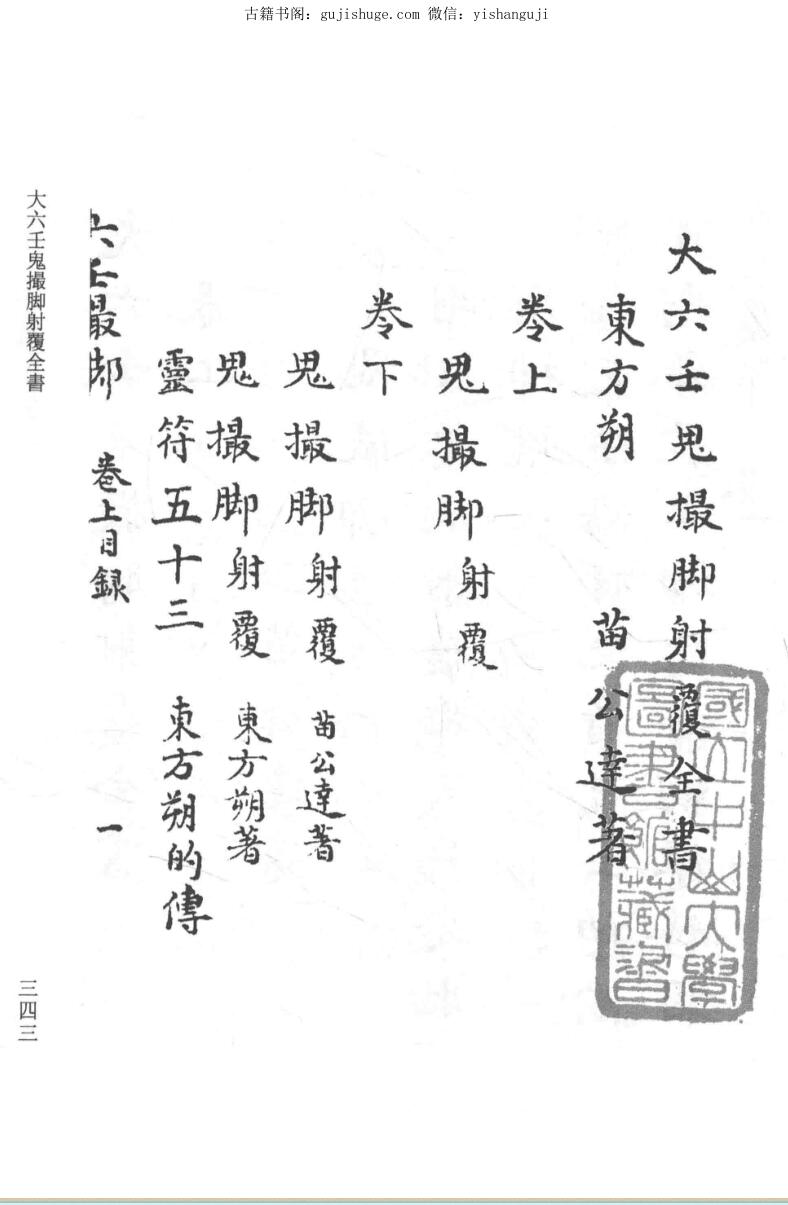 古籍书阁：gujishuge.com 微信：yishanguji
大六壬鬼撮脚射覆全書
東方朔 苗公達著
卷上
鬼撮脚射覆
卷下
鬼撮脚射覆 苗公達著
鬼撮脚射覆 東方朔著
靈符五十三 東方朔的傳
六壬最脚 卷上目録 一
大六壬鬼撮脚射覆全書
三四三
國立中山大學
圖書館藏書